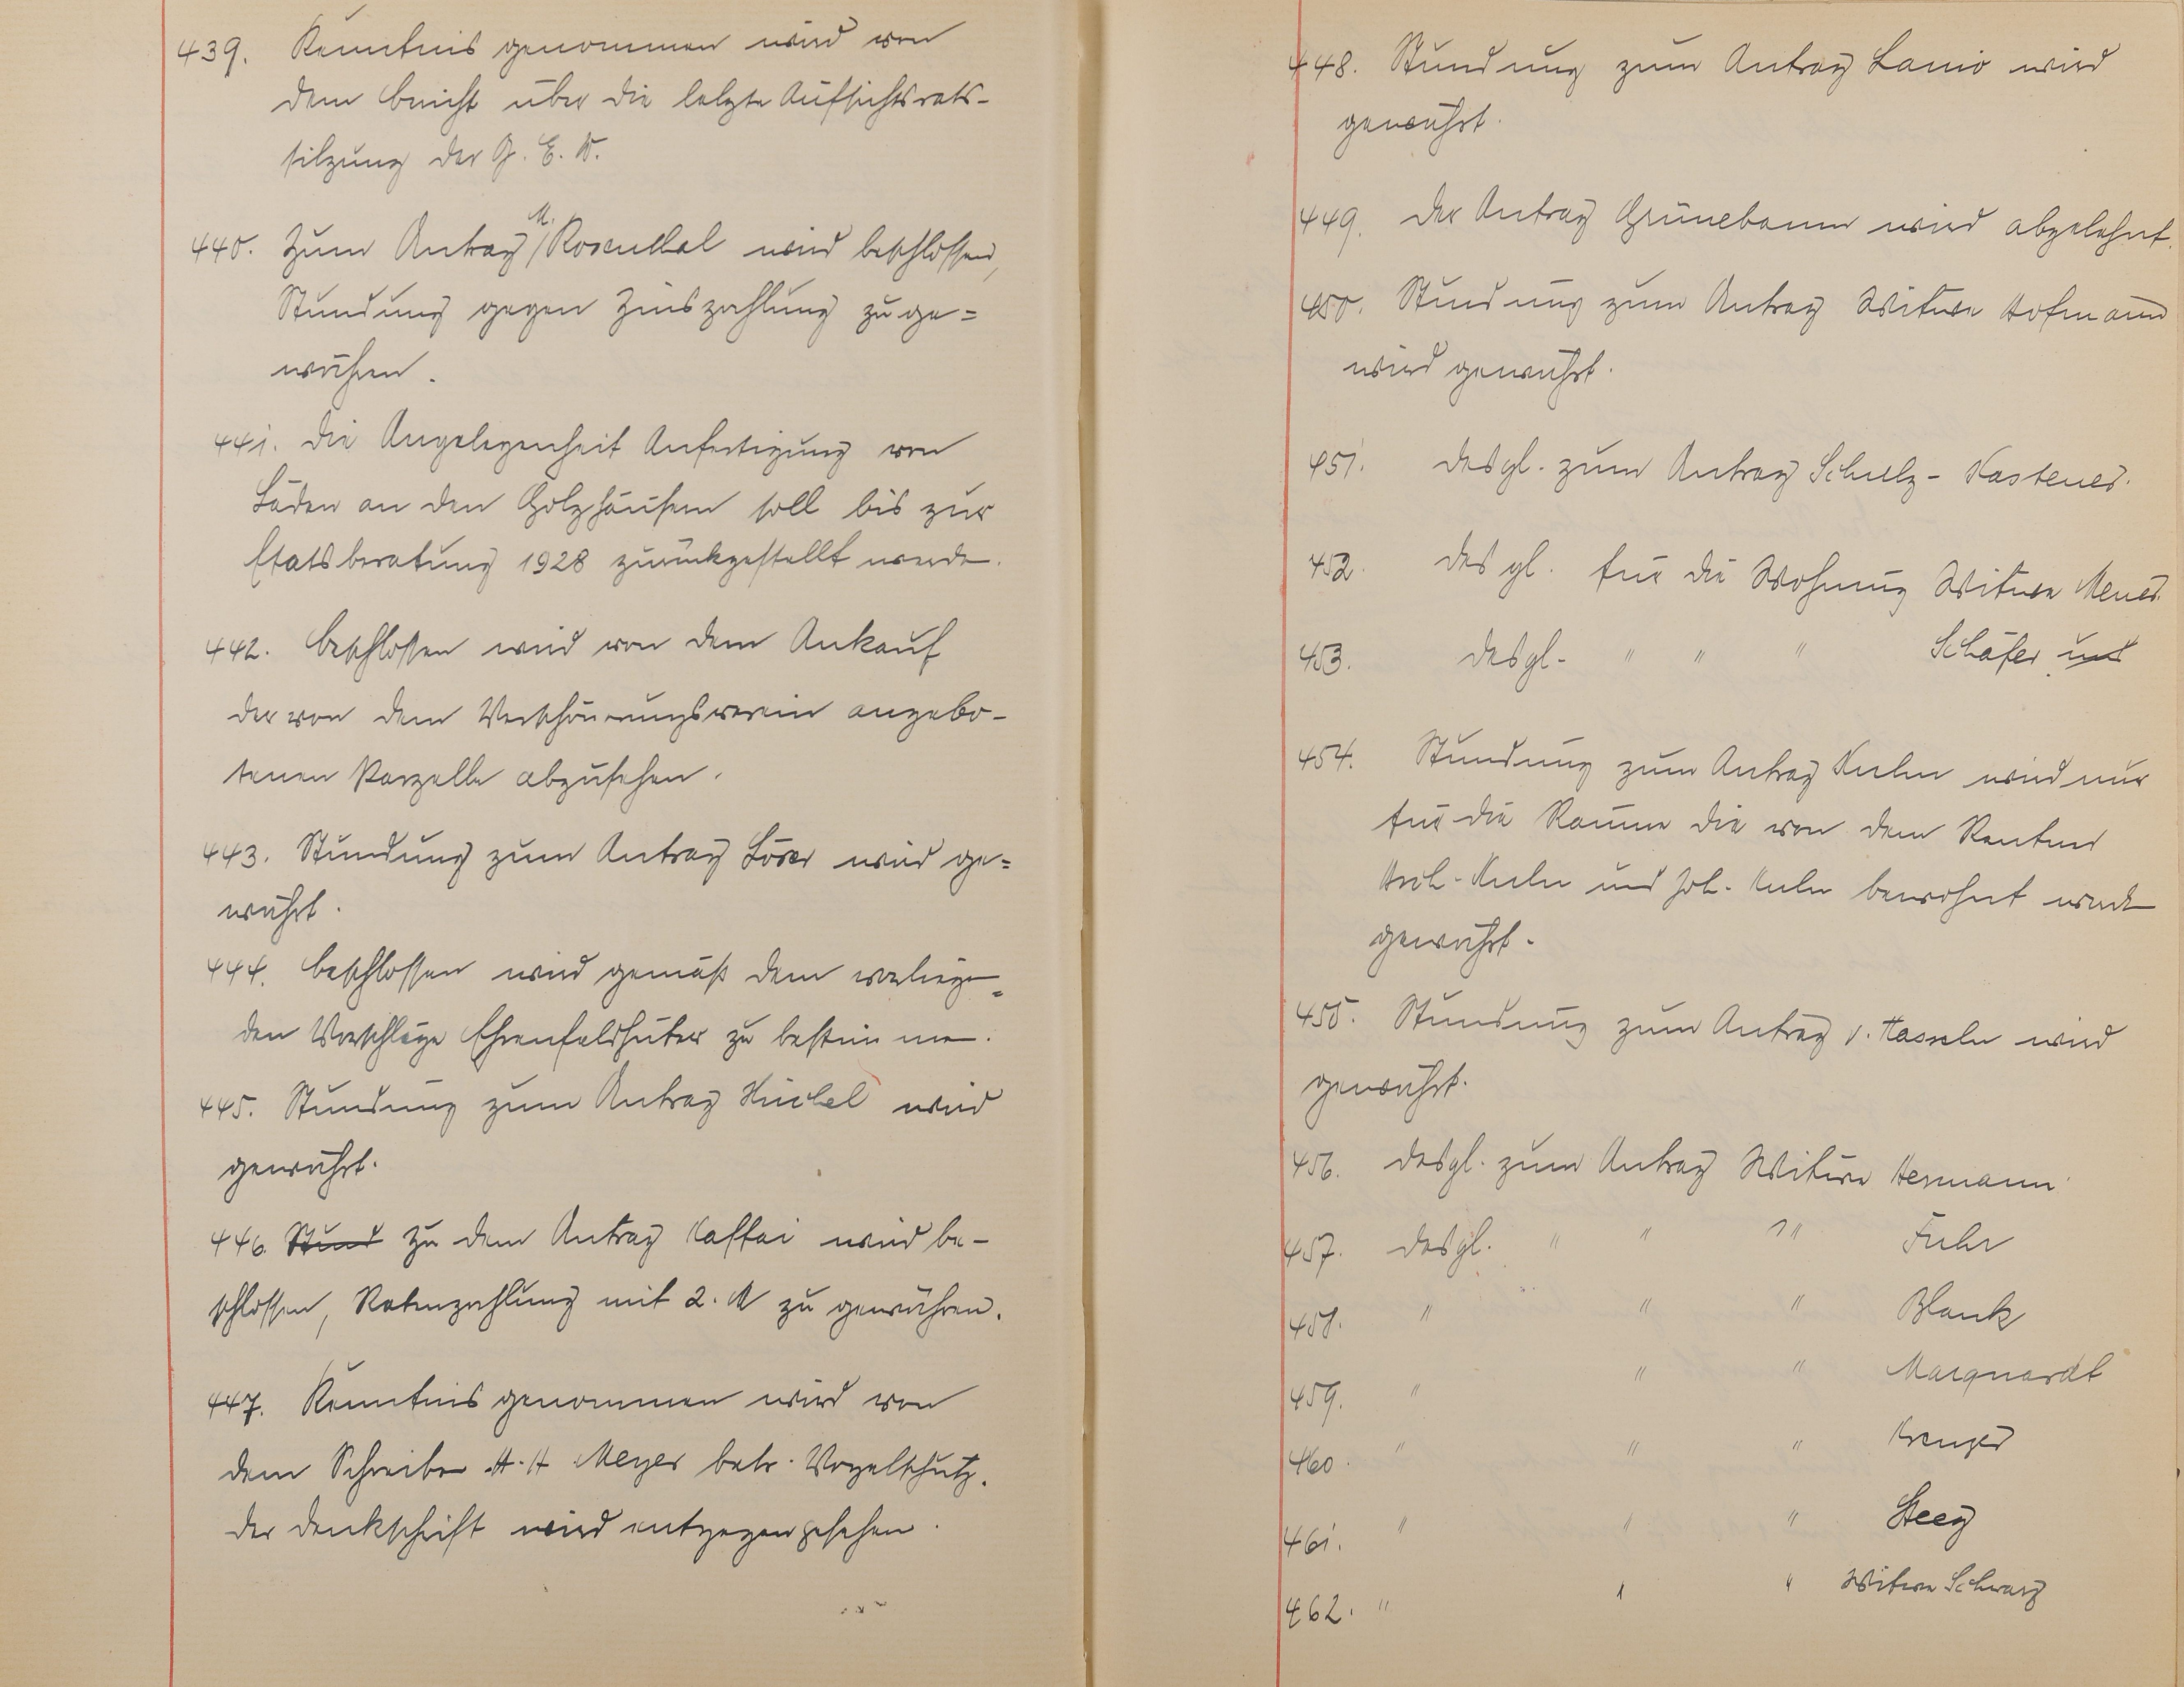 439. Kenntnis genommen wird von
dem Bericht über die letzte Aufsichtsrats-
sitzung der G. E. W.
440. Zum Antrag M. Rosenthal wird beschlossen,
Stundung gegen Zinszahlung zu ge=
währen.
441. Die Angelegenheit Anfertigung von
Läden an den Holzhäusern soll bis zur
Etatsberatung 1928 zurückgestellt werden.
442. Beschlossen wird von dem Ankauf
der von dem Verschönerungsverein angebo-
tenen Parzelle abzusehen.
443. Stundung zum Antrag Löser wird ge=
währt.
444. Beschlossen wird gemäß dem vorliegen=
den Vorschlage Ehrenfeldhüter zu bestimmen.
445. Stundung zum Antrag wird
gewährt.
446. Stund Zu dem Antrag Kaffai wird be-
schlossen, Ratenzahlung mit 2. M zu gewähren.
447. Kenntnis genommen wird von
dem Schreiben A. H Meyer betr. Vogelschutz.
Der Denkschrift wird entgegengesehen.
448. Stundung zum Antrag Lanio wird
gewährt.
449. Der Antrag Grünebaum wird abgelehnt.
450. Stundung zum Antrag Witwe Hofmann
wird gewährt.
451. desgl. zum Antrag Schulz-Kastener.
452. desgl. für die Wohnung Witwe
453. desgl. " " " Schäfer und
454. Stundung zum Antrag Kuhn wird nur
für die Räume die von dem Rentner
Kuhn und Joh. Kuhn bewohnt werden
gewährt.
455. Stundung zum Antrag v. Hasseln wird
gewährt.
456. desgl. zum Antrag Witwe Hermann
457. desgl. " " " " Fuhr
458. " " " Blank
459. " " " Marquardt
460. " " " Krenzer
461. " " " Steeg
462. " " " Witwe Schwarz